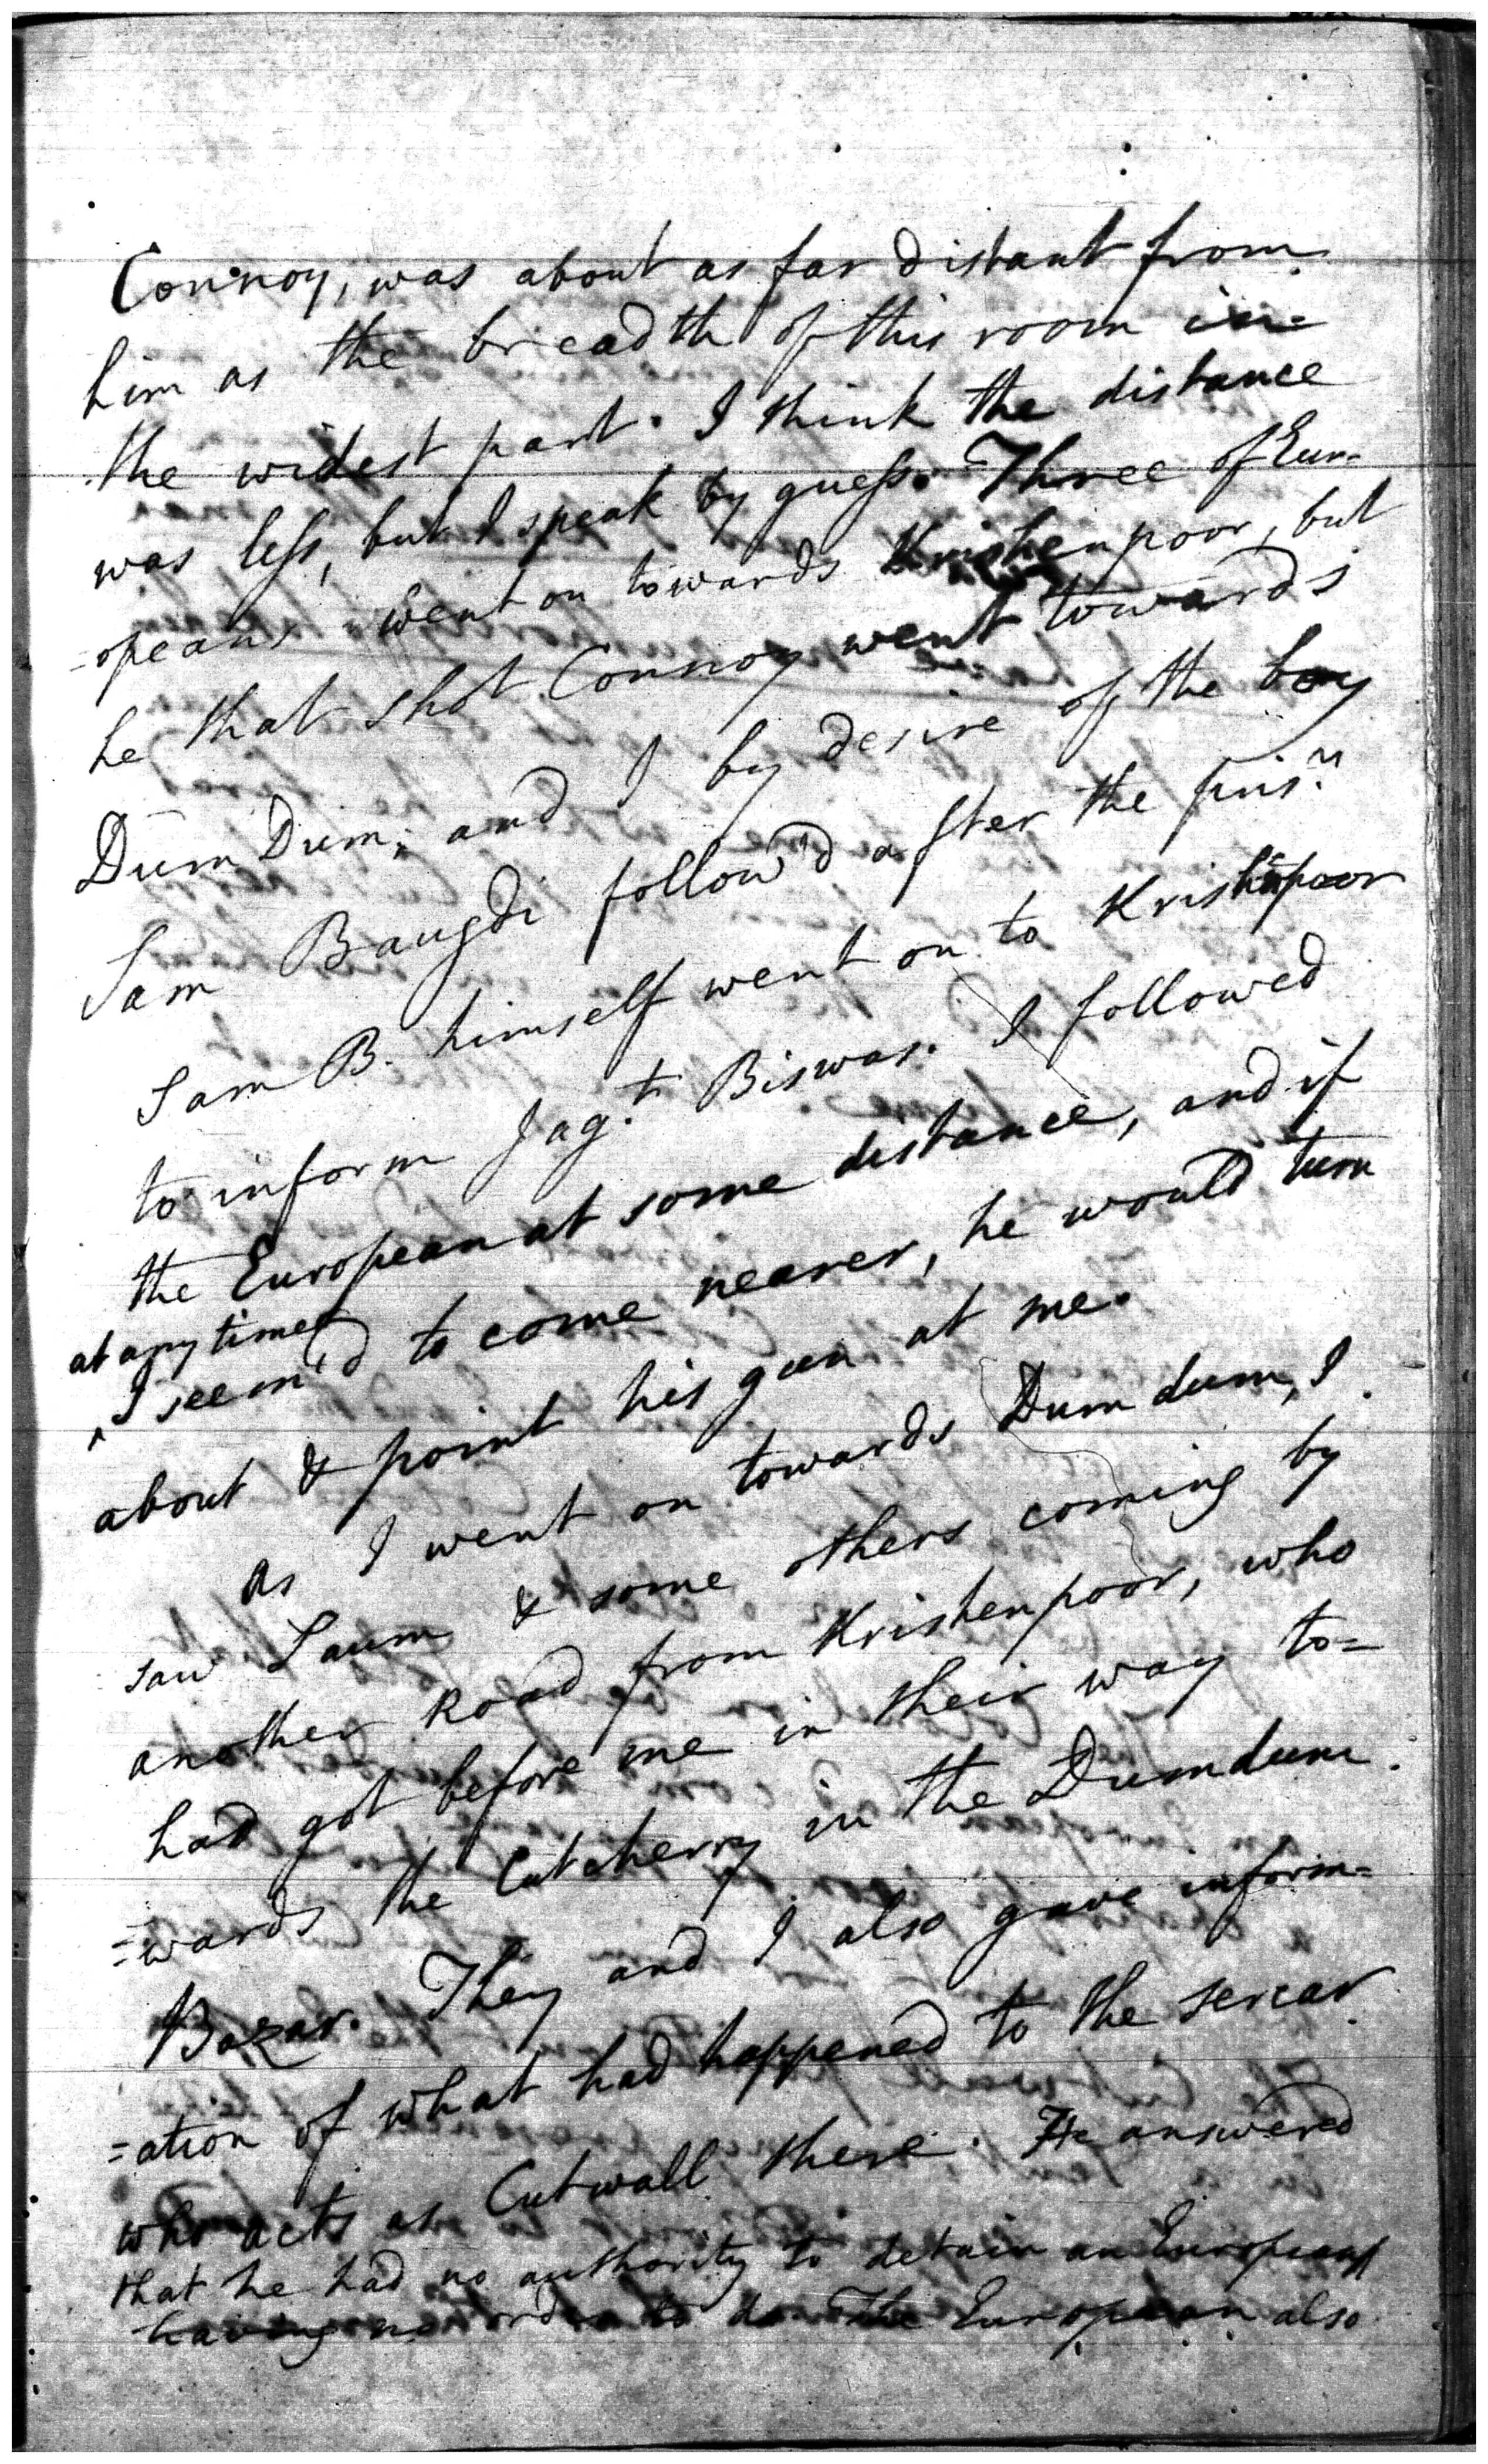 Connoy, was about as far distant from
him as the breadth of this room in
the widest part. I think the distance
was less, but I speak by guess. Three of Eur-
=opeans went on towards Krishenpoor, but
he that shot Connoy went towards
Dum Dum; and I by desire of the boy
Sam Baugdi follow'd after the pris.r
Sam B. himself went on to Krishnpoor
to inform Jag.t Biswas. I followed
the European at some distance, and if
at any time
^ I seem'd to come nearer, he would turn
about & point his gun at me.
As I went on towards Dum dum, I
saw Saum & some others coming by
another Road from Krishenpoor, who
had got before me in their way to=
=wards the Cutcherry in the Dumdum
Bazar. They and I also gave inform=
=ation of what had happened to the sercar
who acts as Cutwall there. He answered
that he had no authority to detain an European
having no orders to do The European also